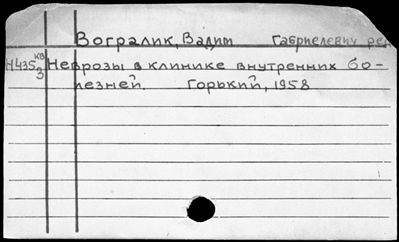 Вогралик, Вадим Габриелевич ред
Н435 кв 3 Неврозы в клинике внутренних бо-
лезней. Горький, 1958